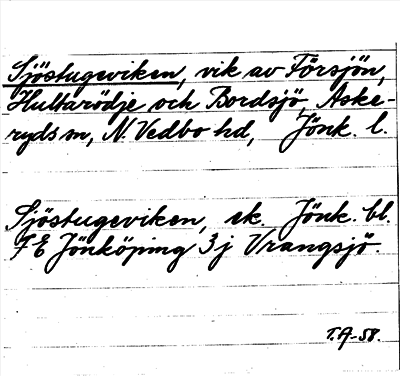 Sjöstugeviken, vik av Försjön,
Hultarödje och Bordsjö, Aske-
ryds sn, N. Vedbo hd, Jönk. l.
Sjöstugeviken, ek. Jönk. bl.
7 E Jönköping 3 j Vrangsjö.
T.A-58.